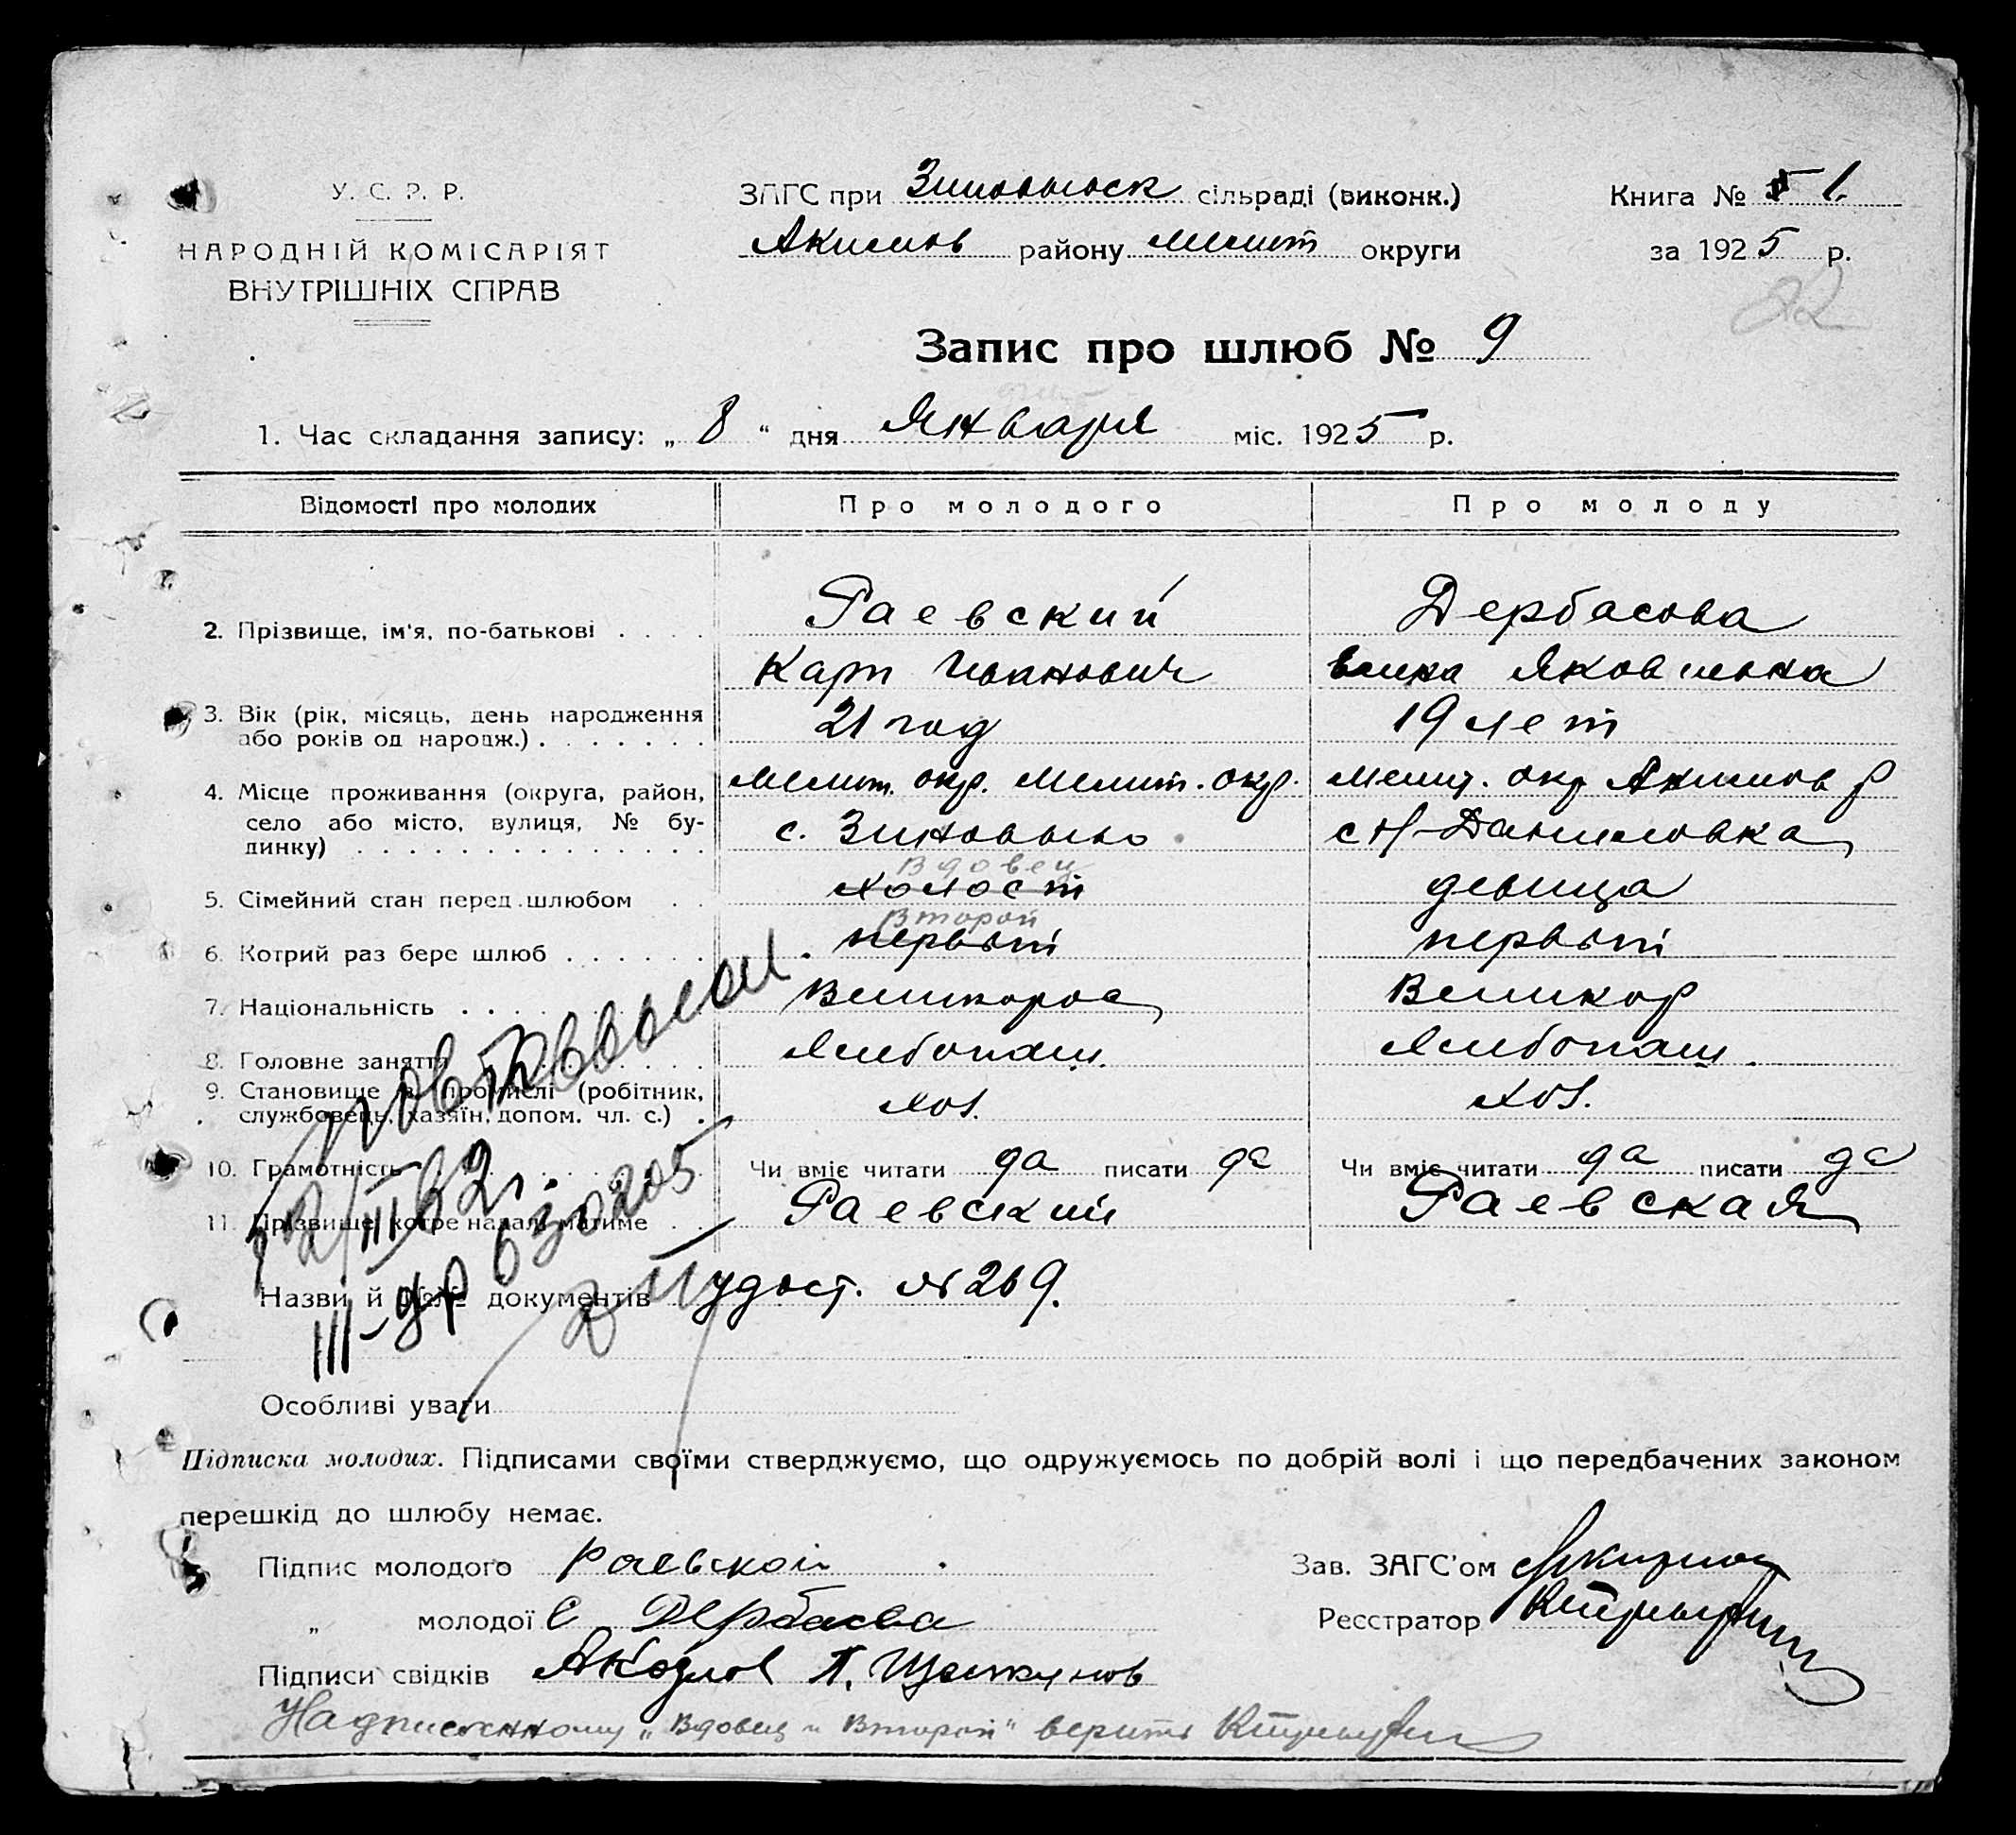 У. С. Р. Р.
НАРОДНІЙ КОМІСАРІЯТ
ВНУТРІШНІХ СПРАВ
ЗАГС при Зиновьевск сільраді (виконк.)
Акимов району Мелит округи
Книга № 1.
за 1925 р.
82
Запис про шлюб № 9
1. Час складання запису: „ 8 “ дня Января міс. 1925 р.
Відомості про молодих Про молодого Про молоду
2. Прізвище, ім'я, по-батькові . . . . Раевский Дербасова
Карп Иванович Яковлевна
3. Вік (рік, місяць, день народження 21 год 19 лет
або років од народж.) . . . . . . .
4. Місце проживання (округа, район, Мелит. окр. Мелит. окр. Мелит. окр Акимов р
село або місто, вулиця, № бу- с. Зиновьево с Н-Даниловка
динку) . . . . . . . . . . . . . .
Вдовец
5. Сімейний стан перед шлюбом . . холост девица
Второй
6. Котрий раз бере шлюб . . . . . . первый первый
7. Національність . . . . Великорос Великор
8. Головне заняття Хлебопаш. Хлебопаш.
9. Становище в промислі (робітник, хоз. хоз.
службовець, хазяїн, допом. чл. с.) .
10. Грамотність Чи вміє читати да писати да Чи вміє читати да писати да
11. Прізвище, котре надалі матиме . . Раевский Раевская
Повт выслан
12/III 62 г.
630205
III-др
Назви й №№ документів удост. № 269.
Особливі уваги
Підписка молодих. Підписами своїми стверджуємо, що одружуємось по добрій волі і що передбачених законом
перешкід до шлюбу немає.
Підпис молодого Раевской
Зав. ЗАГС'ом
„ молодої Е Дербасва
Реєстратор
Підписи свідків А Козлов П.
Надписанному „Вдовец и Второй“ верить